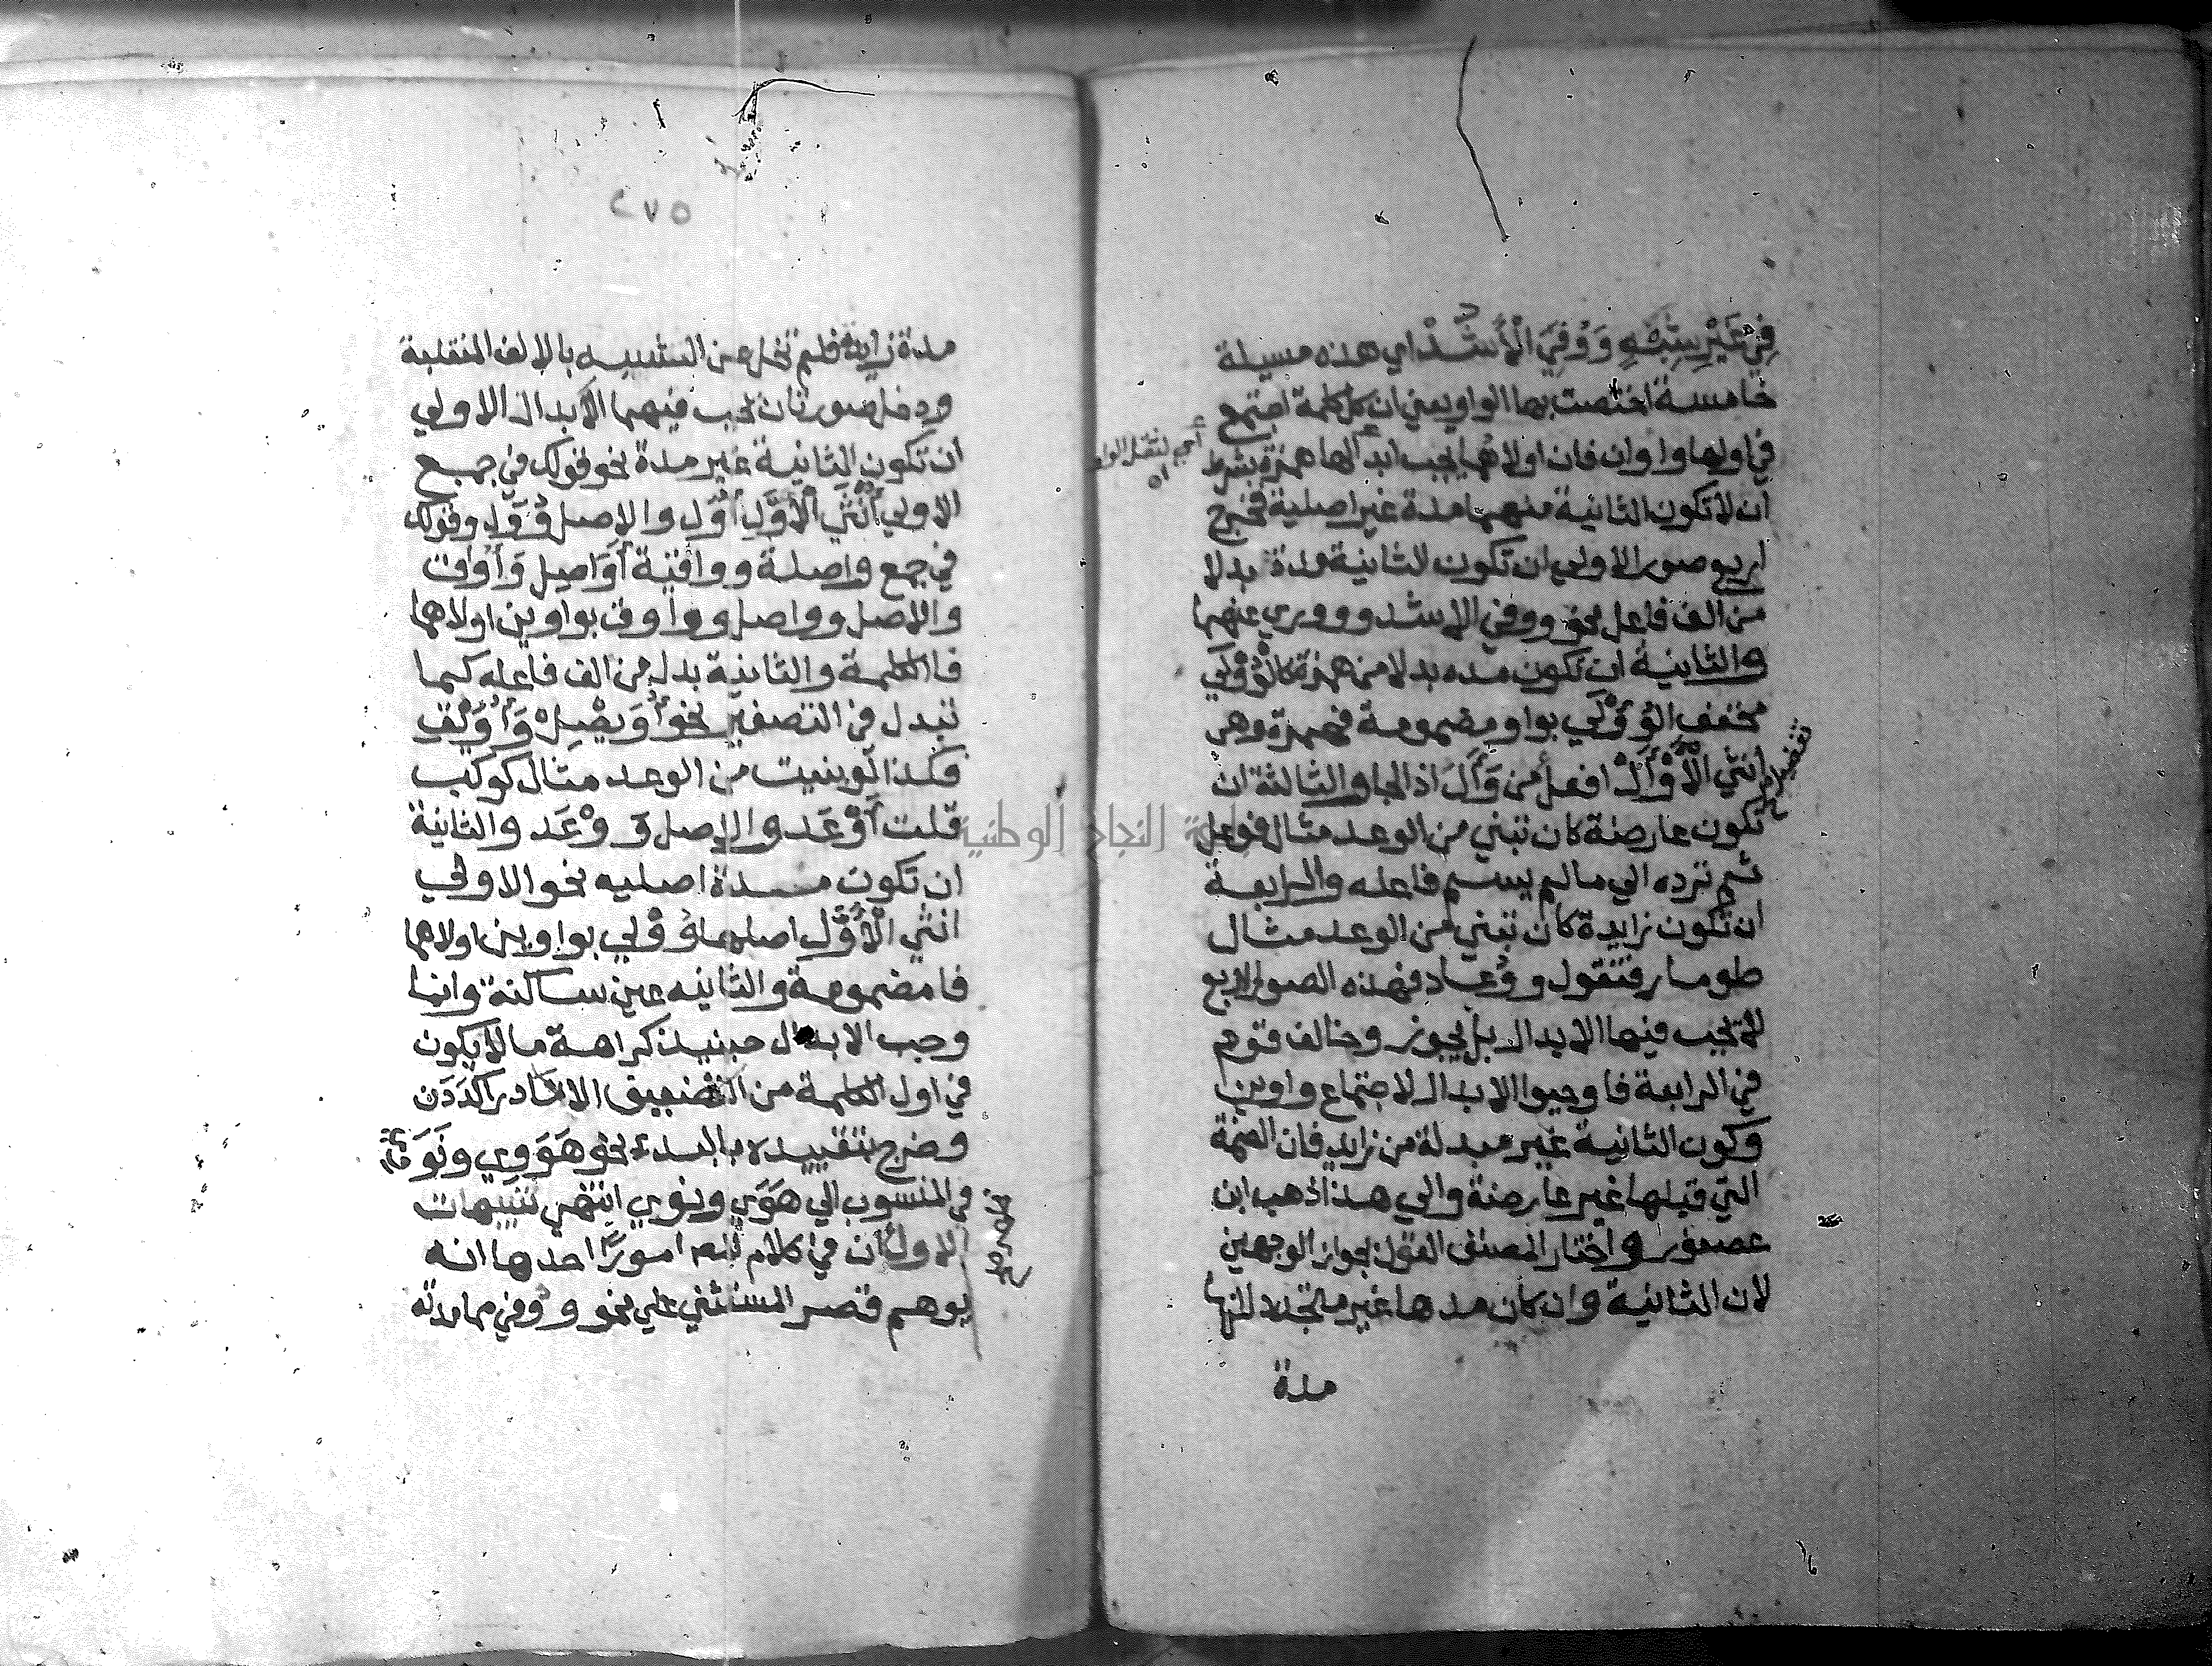 فِي غَيْرِ شِبْهِ وَوُفِيَ الْأَشُدّ اي هذه مسيلة
خامسة اختصت بها الواو يعني ان كل كلمة اجتمع
في اولها واوان فان اولاهما يجب ابدالها همزة بشرط
ان لا تكون الثانية منهما مدة غير اصلية فخرج
اربع صور الاولي ان تكون الثانية مدة بدلا
من الف فاعل نحو ووفي الاشد وووري عنهما
والثانية ان تكون مده بدلا من همزة كالوُوْلَي
مخفف الوُؤْلَي بواو مضمومة فهمزة وهي
انثي الْأَوْأَلْ افعل من وَأَلَ اذا لجا والثالثة ان
تكون عارضة كان تبني من الوعد مثال فوعل
ثم ترده الي ما لم يسم فاعله والرابعة
ان تكون زايدة كان تبني من الوعد مثال
طومار فتقول ووعاد فهذه الصور الاربع
لا تجب فيها الابدال بل يجوز وخالف قوم
في الرابعة فاوجبوا الابدال لاجتماع واوين
وكون الثانية غير مبدلة من زايد فان الضمة
التي قبلها غير عارضة والي هذا ذهب ابن
عصفور واختار المصنف القول بجواز الوجهين
لان الثانية وان كان مدها غير متجدد لكنها
مدة
تفضيل
٢٧٥
مدة زايدة فلم تخل عن الشبيه بالالف المنقلبة
ودخل صورتان تجب فيهما الابدال الاولي
ان تكون الثانية غير مدة نحو قولك في جمع
الاولي أنثي الْأَوَّلِ أُوَل والاصل وُوَل وقولك
في جمع واصلة وواقية أَوَاصِل وَأَوَاق
والاصل وواصل وواوق بواوين اولاهما
فا الكلمة والثانية بدل من الف فاعله كما
تبدل في التصغير نحو أُوَيْصِلْ وَأُوَيْق
فكذا لو بنيت من الوعد مثال كوكب
قلت أَوْعَد والاصل وَوْعَد والثانية
ان تكون مدة اصليه نحو الاولي
انثي الْأَوَّل اصلها وُوْلي بواوين اولاهما
فا مضمومة والثانيه عين ساكنة وانما
وجب الابدال حينيذ كراهة ما لا يكون
في اول الكلمة من التضعيف الا نادرا كدَدَن
وخرج بتقييده بالبدء نحو هَوَوِي ونَوَوِي
في المنسوب الي هَوَي ونوي انتهي تنبيهات
الاول ان في كلام امورًا احدها انه
يوهم قصر المستثني علي نحو ووفي مما مدته
جامعة النجاح الوطنية